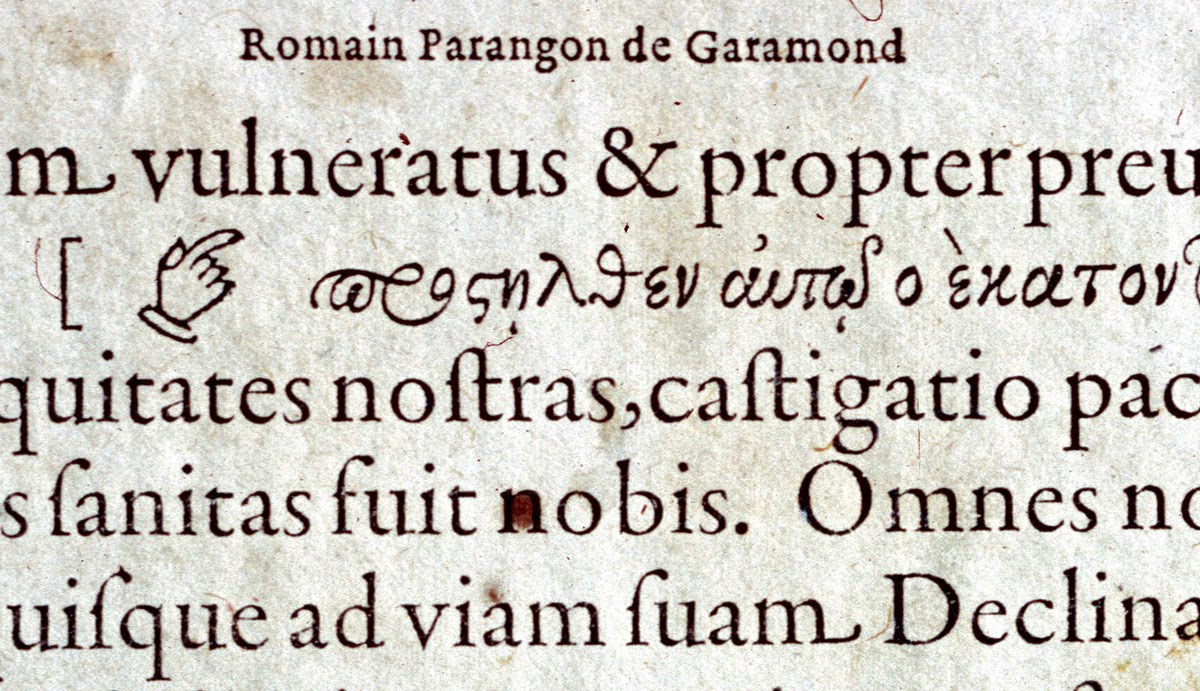 Romain Parangon de Garamond
m vulneratus & propter preu
[ ☞ ϖροςῃλθεν ἀυτῷ ο ὲκατον
quitates noſtras, caſtigatio pac
s ſanitas fuit nobis. Omnes no
uiſque ad viam ſuam Declina